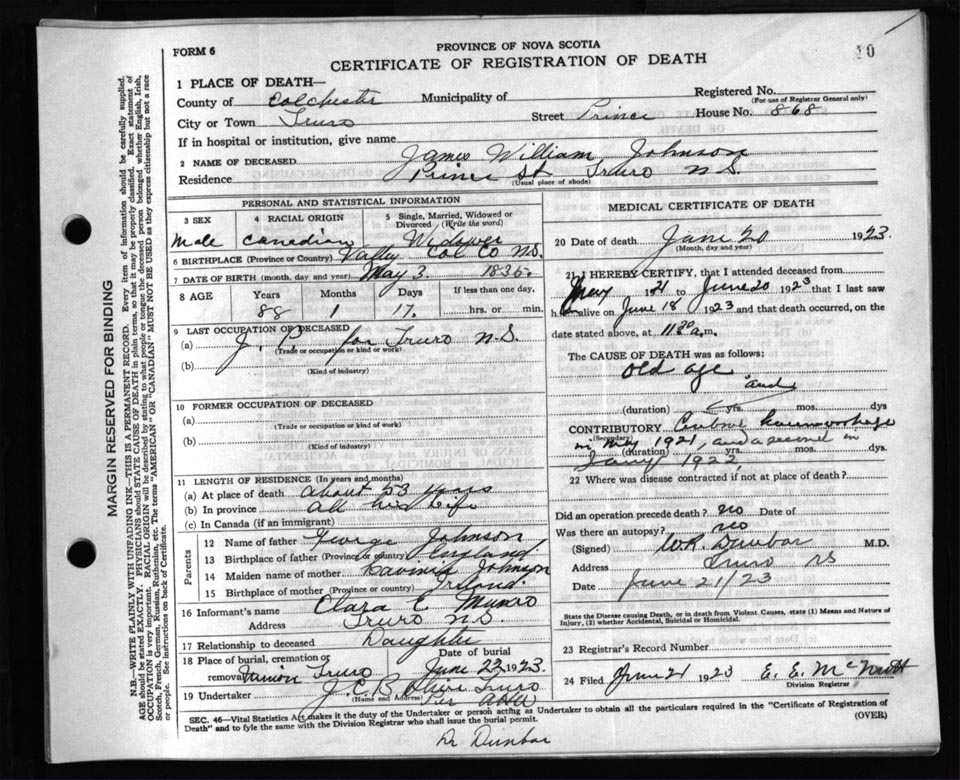 FORM 6
PROVINCE OF NOVA SCOTIA
CERTIFICATE OF REGISTRATION OF DEATH
10
1 PLACE OF DEATH—
County of Colchester Municipality of
Registered No.
(For use of Registrar General only)
City or Town Truro Street Prince House No. 868
If in hospital or institution, give name
2 NAME OF DECEASED James William Johnson
Residence Prince St Truro N.S.
(Usual place of abode)
PERSONAL AND STATISTICAL INFORMATION
3 SEX 4 RACIAL ORIGIN 5 Single, Married, Widowed or Divorced (Write the word)
Male Canadian Widower
6 BIRTHPLACE (Province or Country) Valley Col Co N.S.
7 DATE OF BIRTH (month, day and year) May 3 1835
8 AGE Years Months Days If less than one day,
88 1 17 hrs. or min.
9 LAST OCCUPATION OF DECEASED
(a) J. P. for Truro N.S.
(Trade or occupation or kind or work)
(b)
(Kind of industry)
10 FORMER OCCUPATION OF DECEASED
(a)
(Trade or occupation or kind of work)
(b)
(Kind of industry)
11 LENGTH OF RESIDENCE (In years and months)
(a) At place of death about 53 years
(b) In province all his life
(c) In Canada (if an immigrant)
Parents
12 Name of father George Johnson
13 Birthplace of father (Province or country) England
14 Maiden name of mother Johnson
15 Birthplace of mother (Province or country) Irland
16 Informant's name Clara E Munro
Address Truro N.S.
17 Relationship to deceased Daughter
18 Place of burial, cremation or removal Date of burial
Truro June 22 1923
19 Undertaker J. C. B. Truro
(Name and Address)
MEDICAL CERTIFICATE OF DEATH
20 Date of death June 20 1923.
(Month, day and year)
21 I HEREBY CERTIFY, that I attended deceased from
May 1921 to June 20 1923 that I last saw
h alive on June 18 1923 and that death occurred, on the
date stated above, at 11.30 a.m.
The CAUSE OF DEATH was as follows:
old age
and
(duration) yrs. mos. dys
CONTRIBUTORY haemorrhage
(Secondary)
in May 1921, and a second in
(duration) yrs. mos. dys
Jany 1922
22 Where was disease contracted if not at place of death?
Did an operation precede death? no Date of
Was there an autopsy? no
(Signed) W.R. Dunbar M.D.
Address Truro NS
Date June 21/23
State the Disease causing Death, or in death from Violent Causes, state (1) Means and Nature of
Injury, (2) whether Accidental, Suicidal or Homicidal.
23 Registrar's Record Number
24 Filed June 21 1923 E. E. McNutt
Division Registrar
SEC. 46—Vital Statistics Act makes it the duty of the Undertaker or person acting as Undertaker to obtain all the particulars required in the "Certificate of Registration of
Death" and to fyle the same with the Division Registrar who shall issue the burial permit.
(OVER)
Dr Dunbar
MARGIN RESERVED FOR BINDING
N.B.—WRITE PLAINLY WITH UNFADING INK—THIS IS A PERMANENT RECORD. Every item of information should be carefully supplied.
AGE should be stated EXACTLY. PHYSICIANS should STATE CAUSE OF DEATH in plain terms, so that it may be properly classified. Exact statement of
OCCUPATION is very important. RACIAL ORIGIN will be described by stating to what people or tongue the deceased person belonged whether English, Irish,
Scotch, French, German, Russian, Ruthenian, etc. The terms "AMERICAN" OR "CANADIAN" MUST NOT BE USED as they express citizenship but not a race
or people. See instructions on back of Certificate.